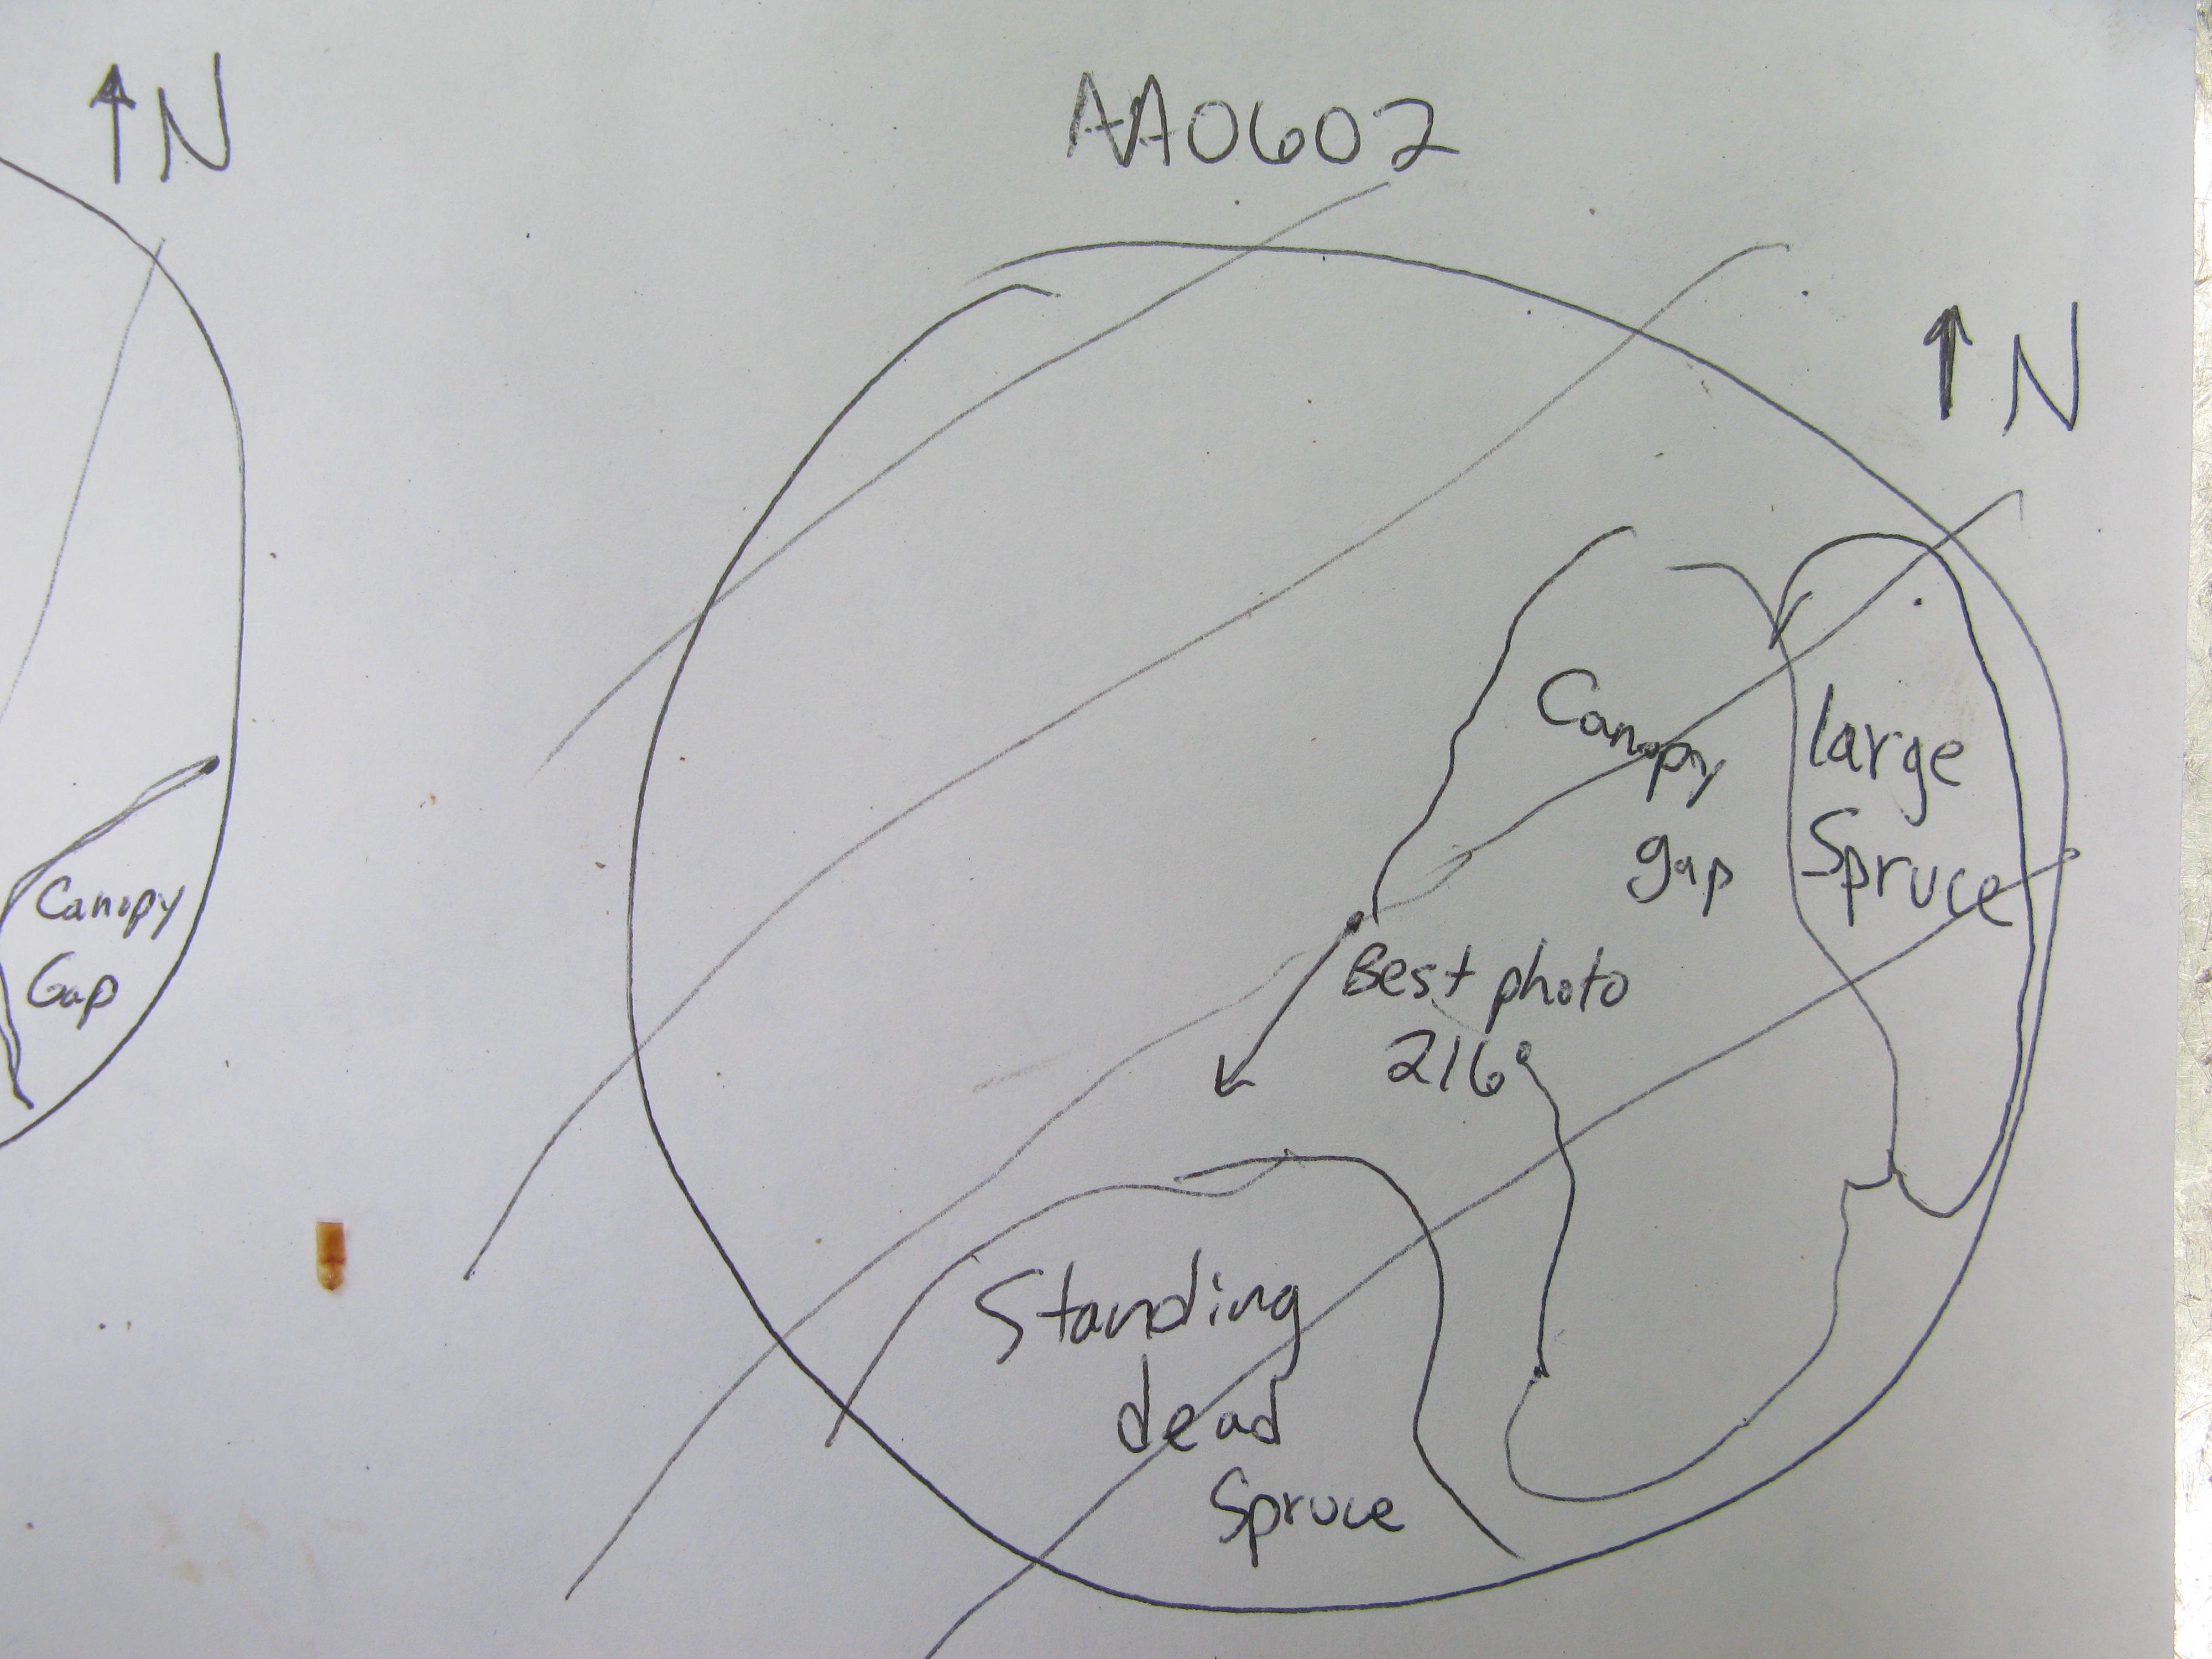 N
Canopy
Gap
AA0602
N
Canopy
gap
large
Spruce
Best photo
216°
Standing
dead
Spruce